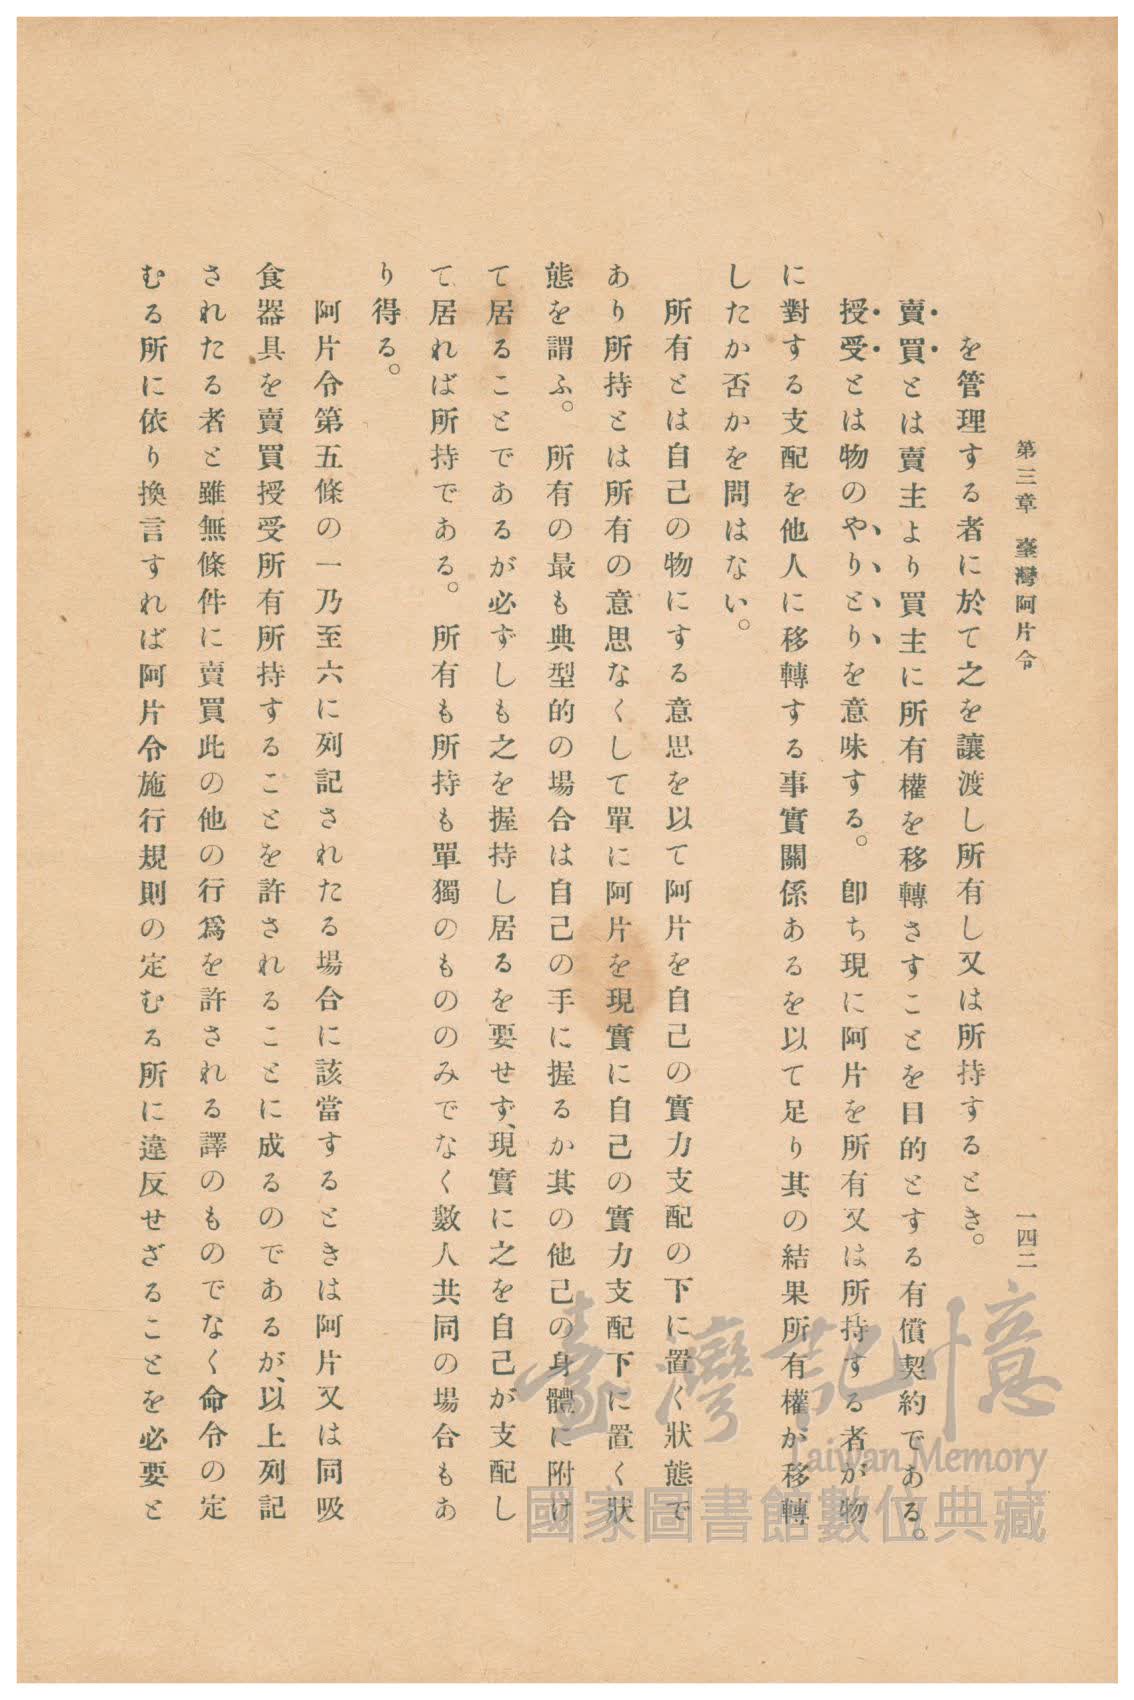 第三章　臺灣阿片令　一四二
を管理する者に於て之を讓渡し所有し又は所持するとき。
賣買とは賣主より買主に所有權を移轉さすことを目的とする有償契約である。
授受とは物のやりとりを意味する。卽ち現に阿片を所有又は所持する者が物
に對する支配を他人に移轉する事實關係あるを以て足り其の結果所有權が移轉
したか否かを問はない。
所有とは自己の物にする意思を以て阿片を自己の實力支配の下に置く狀態で
あり所持とは所有の意思なくして單に阿片を現實に自己の實力支配下に置く狀
態を謂ふ。所有の最も典型的の場合は自己の手に握るか其の他己の身體に附け
て居ることであるが必ずしも之を握持し居るを要せず、現實に之を自己が支配し
て居れば所持である。所有も所持も單獨のもののみでなく數人共同の場合もあ
り得る。
阿片令第五條の一乃至六に列記されたる場合に該當するときは阿片又は同吸
食器具を賣買授受所有所持することを許されることに成るのであるが、以上列記
されたる者と雖無條件に賣買此の他の行爲を許される譯のものでなく命令の定
むる所に依り換言すれば阿片令施行規則の定むる所に違反せざることを必要と
臺灣記憶
Taiwan Memory
國家圖書館數位典藏